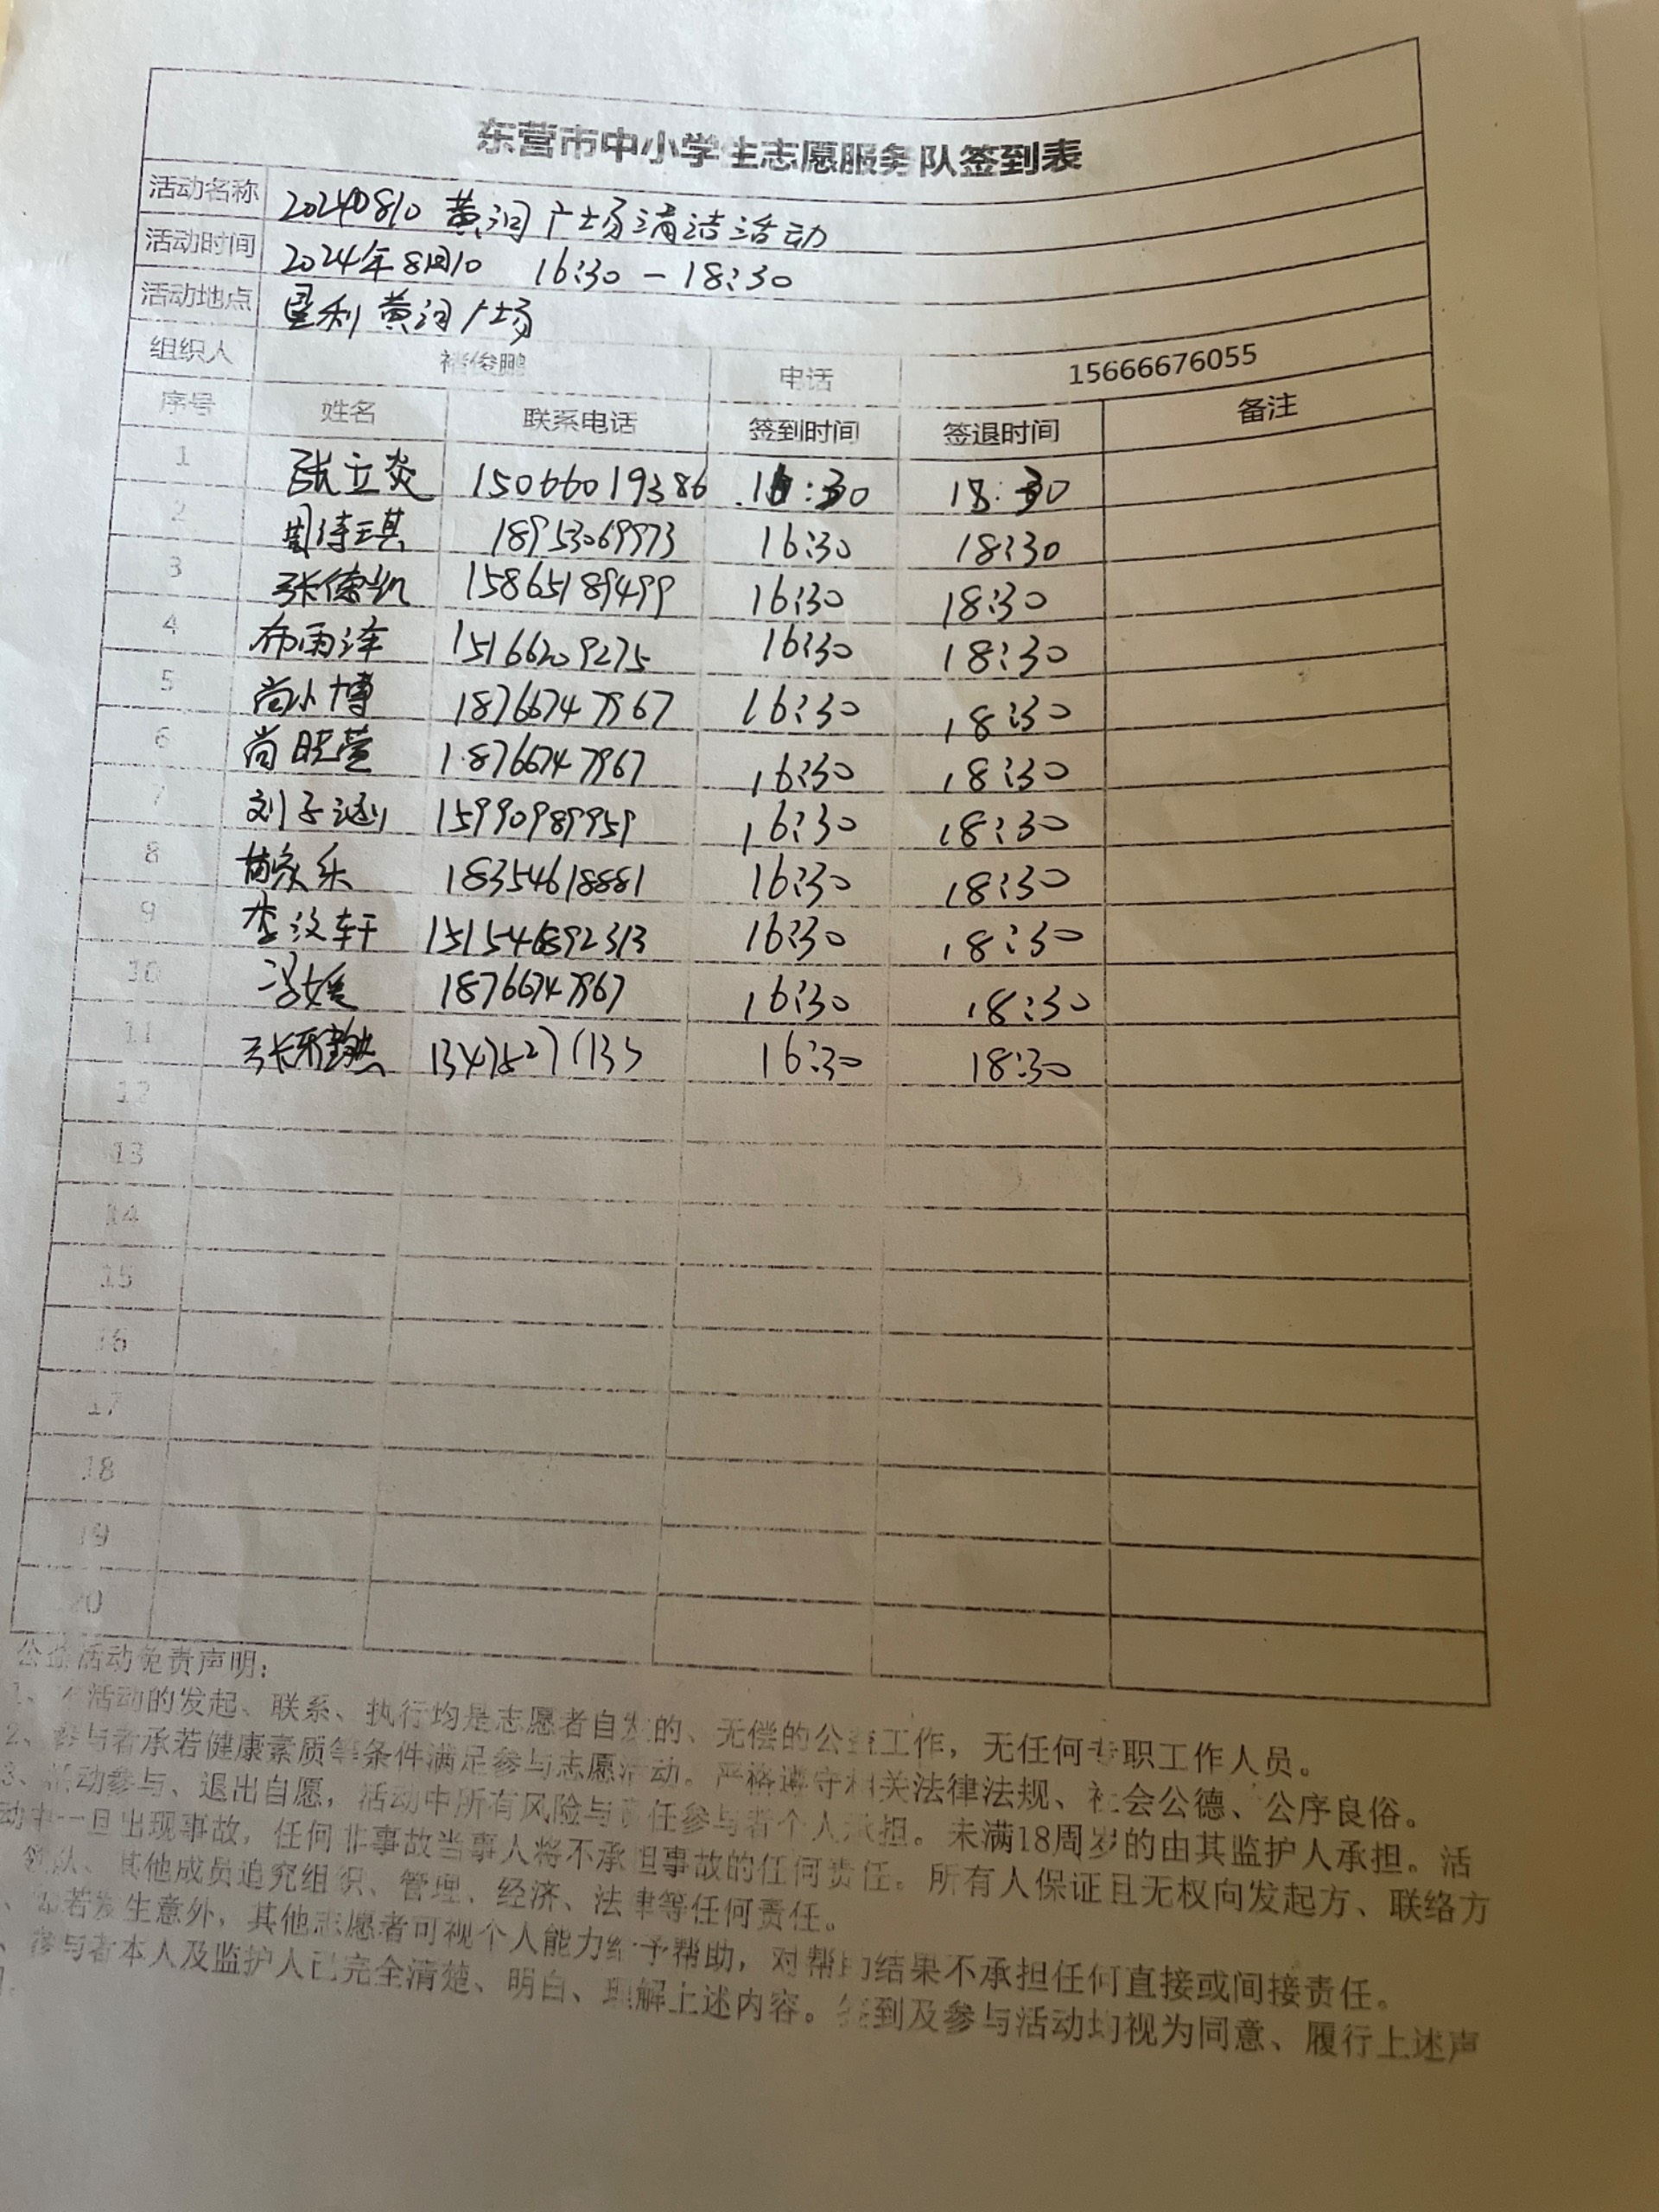 东营市中小学生志愿服务队签到表
活动名称 20240810 黄河广场清洁活动
活动时间 2024年8月10 16:30-18:30
活动地点 垦利黄河广场
组织人 褚俊鹏 电话 15666676055
序号 姓名 联系电话 签到时间 签退时间 备注
1 张立炎 15066019386 16:30 18:30
2 周诗琪 18953069973 16:30 18:30
3 张 15865189499 16:30 18:30
4 布雨泽 15166209275 16:30 18:30
5 尚小博 18766747967 16:30 18:30
6 尚 18766747967 16:30 18:30
7 刘子涵 15990989959 16:30 18:30
8 苗家乐 18354618881 16:30 18:30
9 李汶轩 16:30 18:30
10 冯媛 18766747967 16:30 18:30
11 张雅 16:30 18:30
12
13
14
15
16
17
18
19
20
公益活动免责声明:
1、本活动的发起、联系、执行均是志愿者自发的、无偿的公益工作,无任何专职工作人员。
2、参与者承若健康素质等条件满足参与志愿活动。严格遵守相关法律法规、社会公德、公序良俗。
3、活动参与、退出自愿,活动中所有风险与责任参与者个人承担。未满18周岁的由其监护人承担。活
动中一旦出现事故,任何非事故当事人将不承担事故的任何责任。所有人保证且无权向发起方、联络方
领队、其他成员追究组织、管理、经济、法律等任何责任。
、如若发生意外,其他志愿者可视个人能力给予帮助,对帮助结果不承担任何直接或间接责任。
、参与者本人及监护人已完全清楚、明白、理解上述内容。签到及参与活动均视为同意、履行上述声